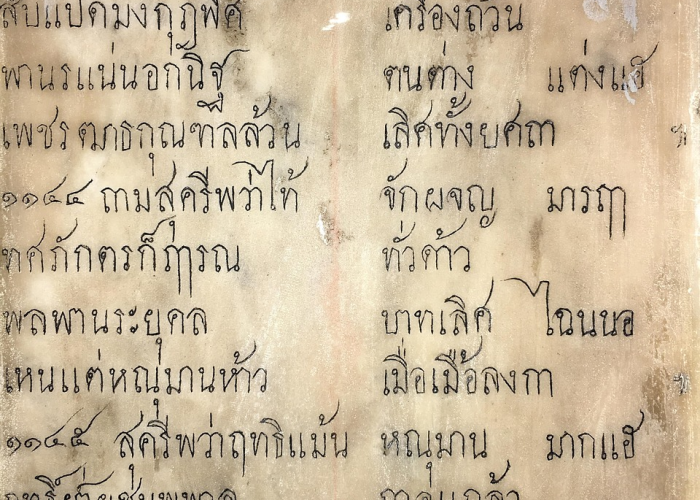 สิบแปดมงกุฎพิศ เครื่องถ้วน
พานรแน่นอกันิฐ ตนต่าง แต่งแฮ
เพชรฒาธกุณฑลล้วน เลิศทั้งยศถา
๑๑๔๔ ถามสุครีพว่าไท้ จักผจญ มารฤๅ
ทศภักตรก็ฤๅรณ ทั่วด้าว
พลพานระยุคล บาทเลิศ ไฉนนอ
เหนแต่หณุมานห้าว เมื่อเมือลงกา
๑๑๔๕ สุครีพว่าฤทธิแม้น หณุมาน มากแฮ